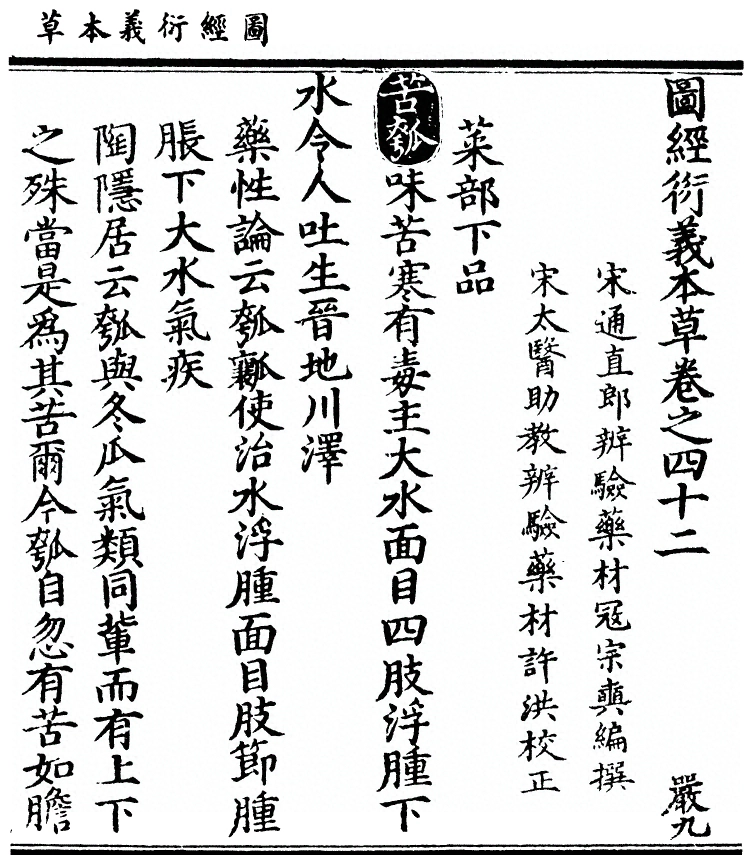 圖經衍義本草
圖經衍義本草卷之四十二　嚴九
宋通直郎辨驗藥材冦宗奭編撰
宋太醫助教辨驗藥材許洪校正
菜部下品
苦瓠味苦寒有毒主大水面目四肢浮腫下
水令人吐生晉地川澤
藥性論云瓠瓤使治水浮腫面目肢節腫
脹下大水氣疾
陶隱居云瓠與冬瓜氣類同軰而有上下
之殊當是爲其苦爾今瓠自忽有苦如膽